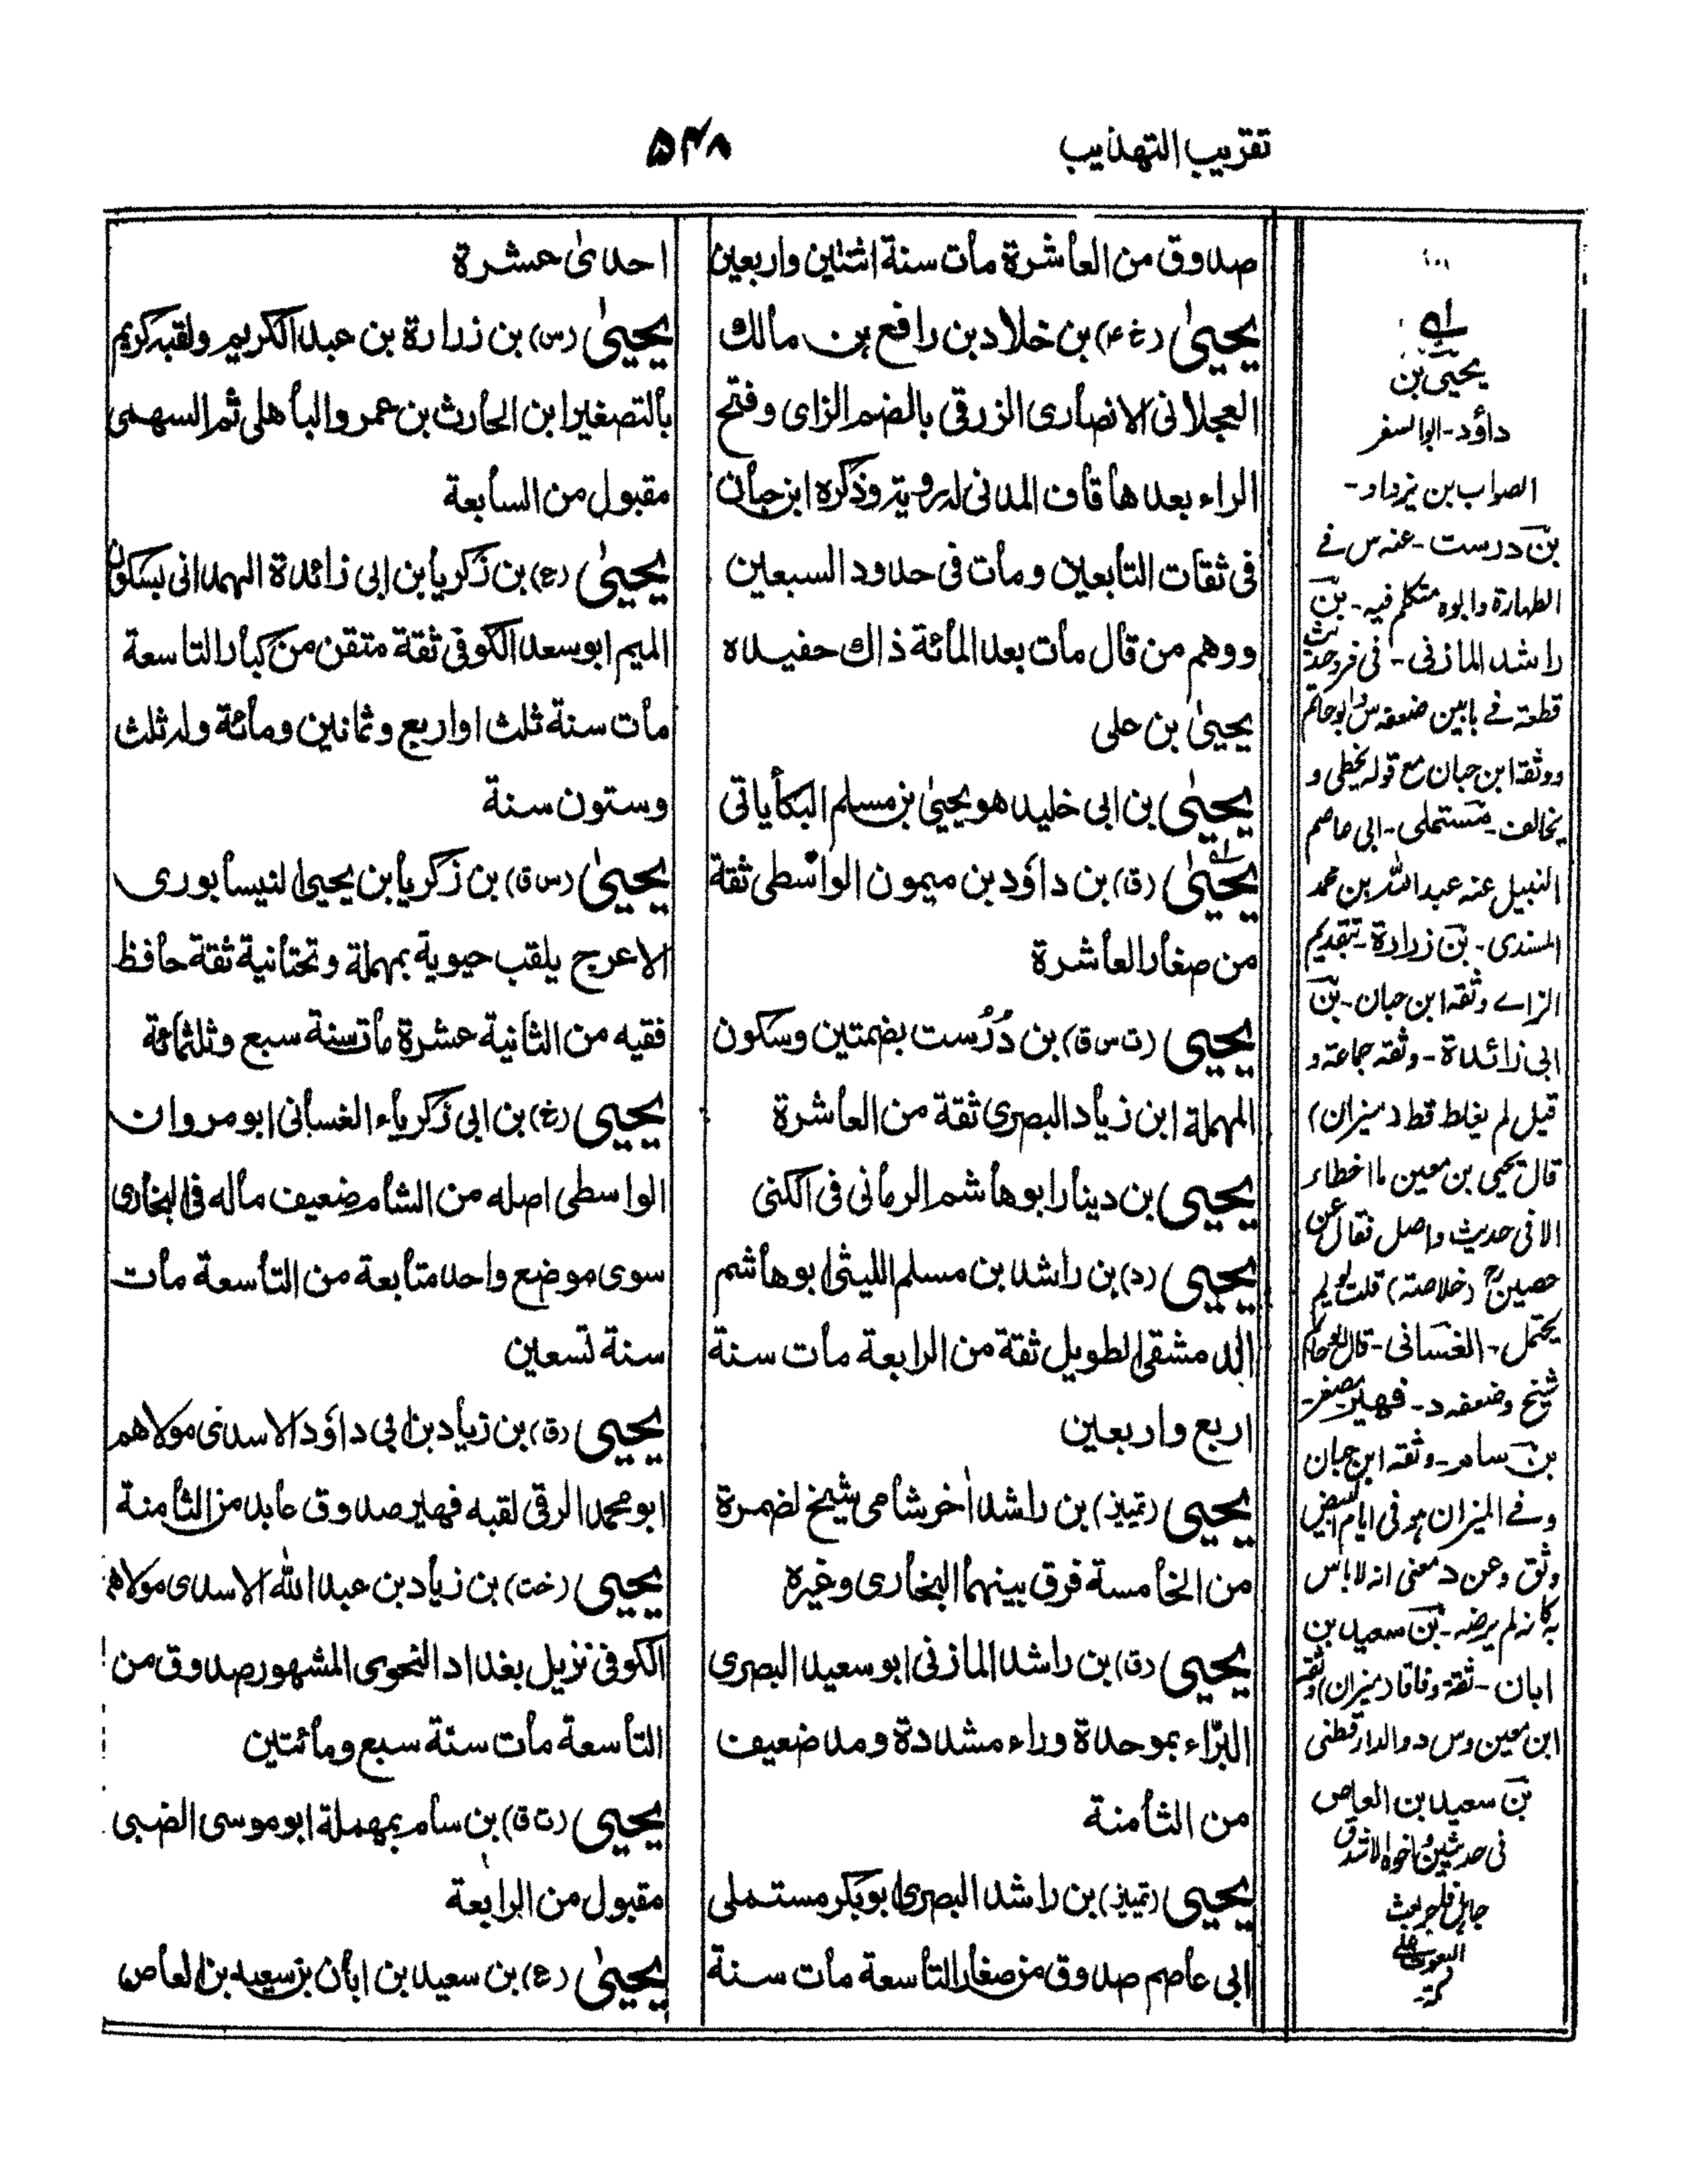 تقريب التهذيب
۵۴۸
صدوق من العاشرة مات سنة اثنتين واربعين
يحيىٰ (خ ۴) بن خلاد بن رافع بن مالك
العجلانى الانصارى الزرقى بالضم الزاى وفتح
الراء بعدها قاف المدنى له روية وذكره ابن حبان
فى ثقات التابعين ومات فى حدود السبعين
ووهم من قال مات بعد المائة ذاك حفيده
يحيىٰ بن على
يحيىٰ بن ابى خليد هو يحيىٰ بن مسلم البكا ياتى
يحيىٰ (ق) بن داؤد بن ميمون الواسطى ثقة
من صغار العاشرة
يحيى (ت س ق) بن دُرُست بضمتين وسكون
المهملة ابن زياد البصرى ثقة من العاشرة
يحيى بن دينار ابوهاشم الرمانى فى الكنى
يحيى (د) بن راشد بن مسلم الليثى ابوهاشم
الدمشقى الطويل ثقة من الرابعة مات سنة
اربع واربعين
يحيى (تمييز) بن راشد اٰخر شامى شيخ لضمرة
من الخامسة فرق بينهما البخارى وغيره
يحيى (ق) بن راشد المازنى ابوسعيد البصرى
البرّاء بموحدة وراء مشددة ومد ضعيف
من الثامنة
يحيى (تمييز) بن راشد البصرى ابوبكر مستملى
ابى عاصم صدوق من صغار التاسعة مات سنة
احدىٰ عشرة
يحيىٰ (س) بن زرارة بن عبد الكريم ولقبه كريم
بالتصغير ابن الحارث بن عمرو الباهلى ثم السهمى
مقبول من السابعة
يحيىٰ (ع) بن زكريا بن ابى زائدة الهمدانى بسكون
الميم ابوسعد الكوفى ثقة متقن من كبار التاسعة
مات سنة ثلث او اربع وثمانين ومائة وله ثلث
وستون سنة
يحيىٰ (س ق) بن زكريا بن يحيى النيسابورى
الاعرج يلقب حيوية بمهملة وتحتانية ثقة حافظ
فقيه من الثانية عشرة مات سنة سبع وثلثمائة
يحيى (خ) بن ابى زكرياء الغسانى ابو مروان
الواسطى اصله من الشام ضعيف ماله فى البخارى
سوى موضع واحد متابعة من التاسعة مات
سنة تسعين
يحيى (ق) بن زياد بن ابى داؤد الاسدى مولاهم
ابو محمد الرقى لقبه فهير صدوق عابد من الثامنة
يحيى (خت) بن زياد بن عبد الله الاسدى مولاهم
الكوفى نزيل بغداد النحوى المشهور صدوق من
التاسعة مات سنة سبع ومائتين
يحيى (ت ق) بن سام بمهملة ابوموسى الضبى
مقبول من الرابعة
يحيىٰ (ع) بن سعيد بن ابان بن سعيد بن العاص
يحيىٰ بن
داؤد - ابوالسفر
الصواب بن يزداد -
بن درست - عنه س فے
الطهارة وابوه متكلم فيه - بن
راشد المازنى - فى فرد حديث
قطعة فے بابين ضعفه س وابوحاتم
ووثقه ابن حبان مع قوله يخطى و
يخالف - مستملى - ابى عاصم
النبيل عنه عبد الله بن محمد
المسندى - بن زرارة - بتقديم
الزاے وثقه ابن حبان - بن
ابى زائدة - وثقه جماعة و
قيل لم يغلط قط (ميزان)
قال يحيى بن معين ما اخطاء
الا فى حديث واصل فقال عن
حصين (خلاصة) قلت لم
يحتمل - الغسانى - قال ابوحاتم
شيخ وضعفه د - فهير مصغر -
بن سام - وثقه ابن حبان
وفے الميزان هو فى ايام البيض
وثق وعن د معنى انه لاباس
به كانه لم يرضه - بن سعيد بن
ابان - ثقة وفاقا (ميزان) وثقه
ابن معين وس د والدارقطنى
بن سعيد بن العاص
فى حديثين واخوه الاشدق